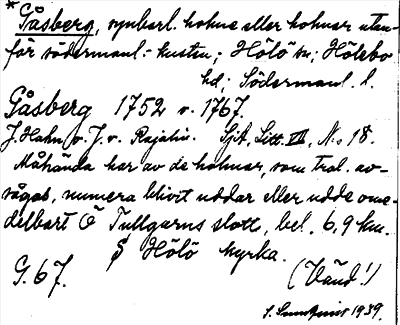 * Gåsberg, synbarl. holme eller holmar utan-
för södermanl.-kusten; Hölö sn; Hölebo
hd; Södermanl. l.
Gåsberg 1752 o. 1767.
J. Hahn o. J. v. Rajalin. Sjök. Litt. VII, N:o 18.
Måhända har av de holmar, som trol. av-
sågos, numera blivit uddar eller udde ome-
delbart Ö Tullgarns slott, bel. 6,9 km.
S Hölö kyrka.
G. 67. (Vänd!)
1939.